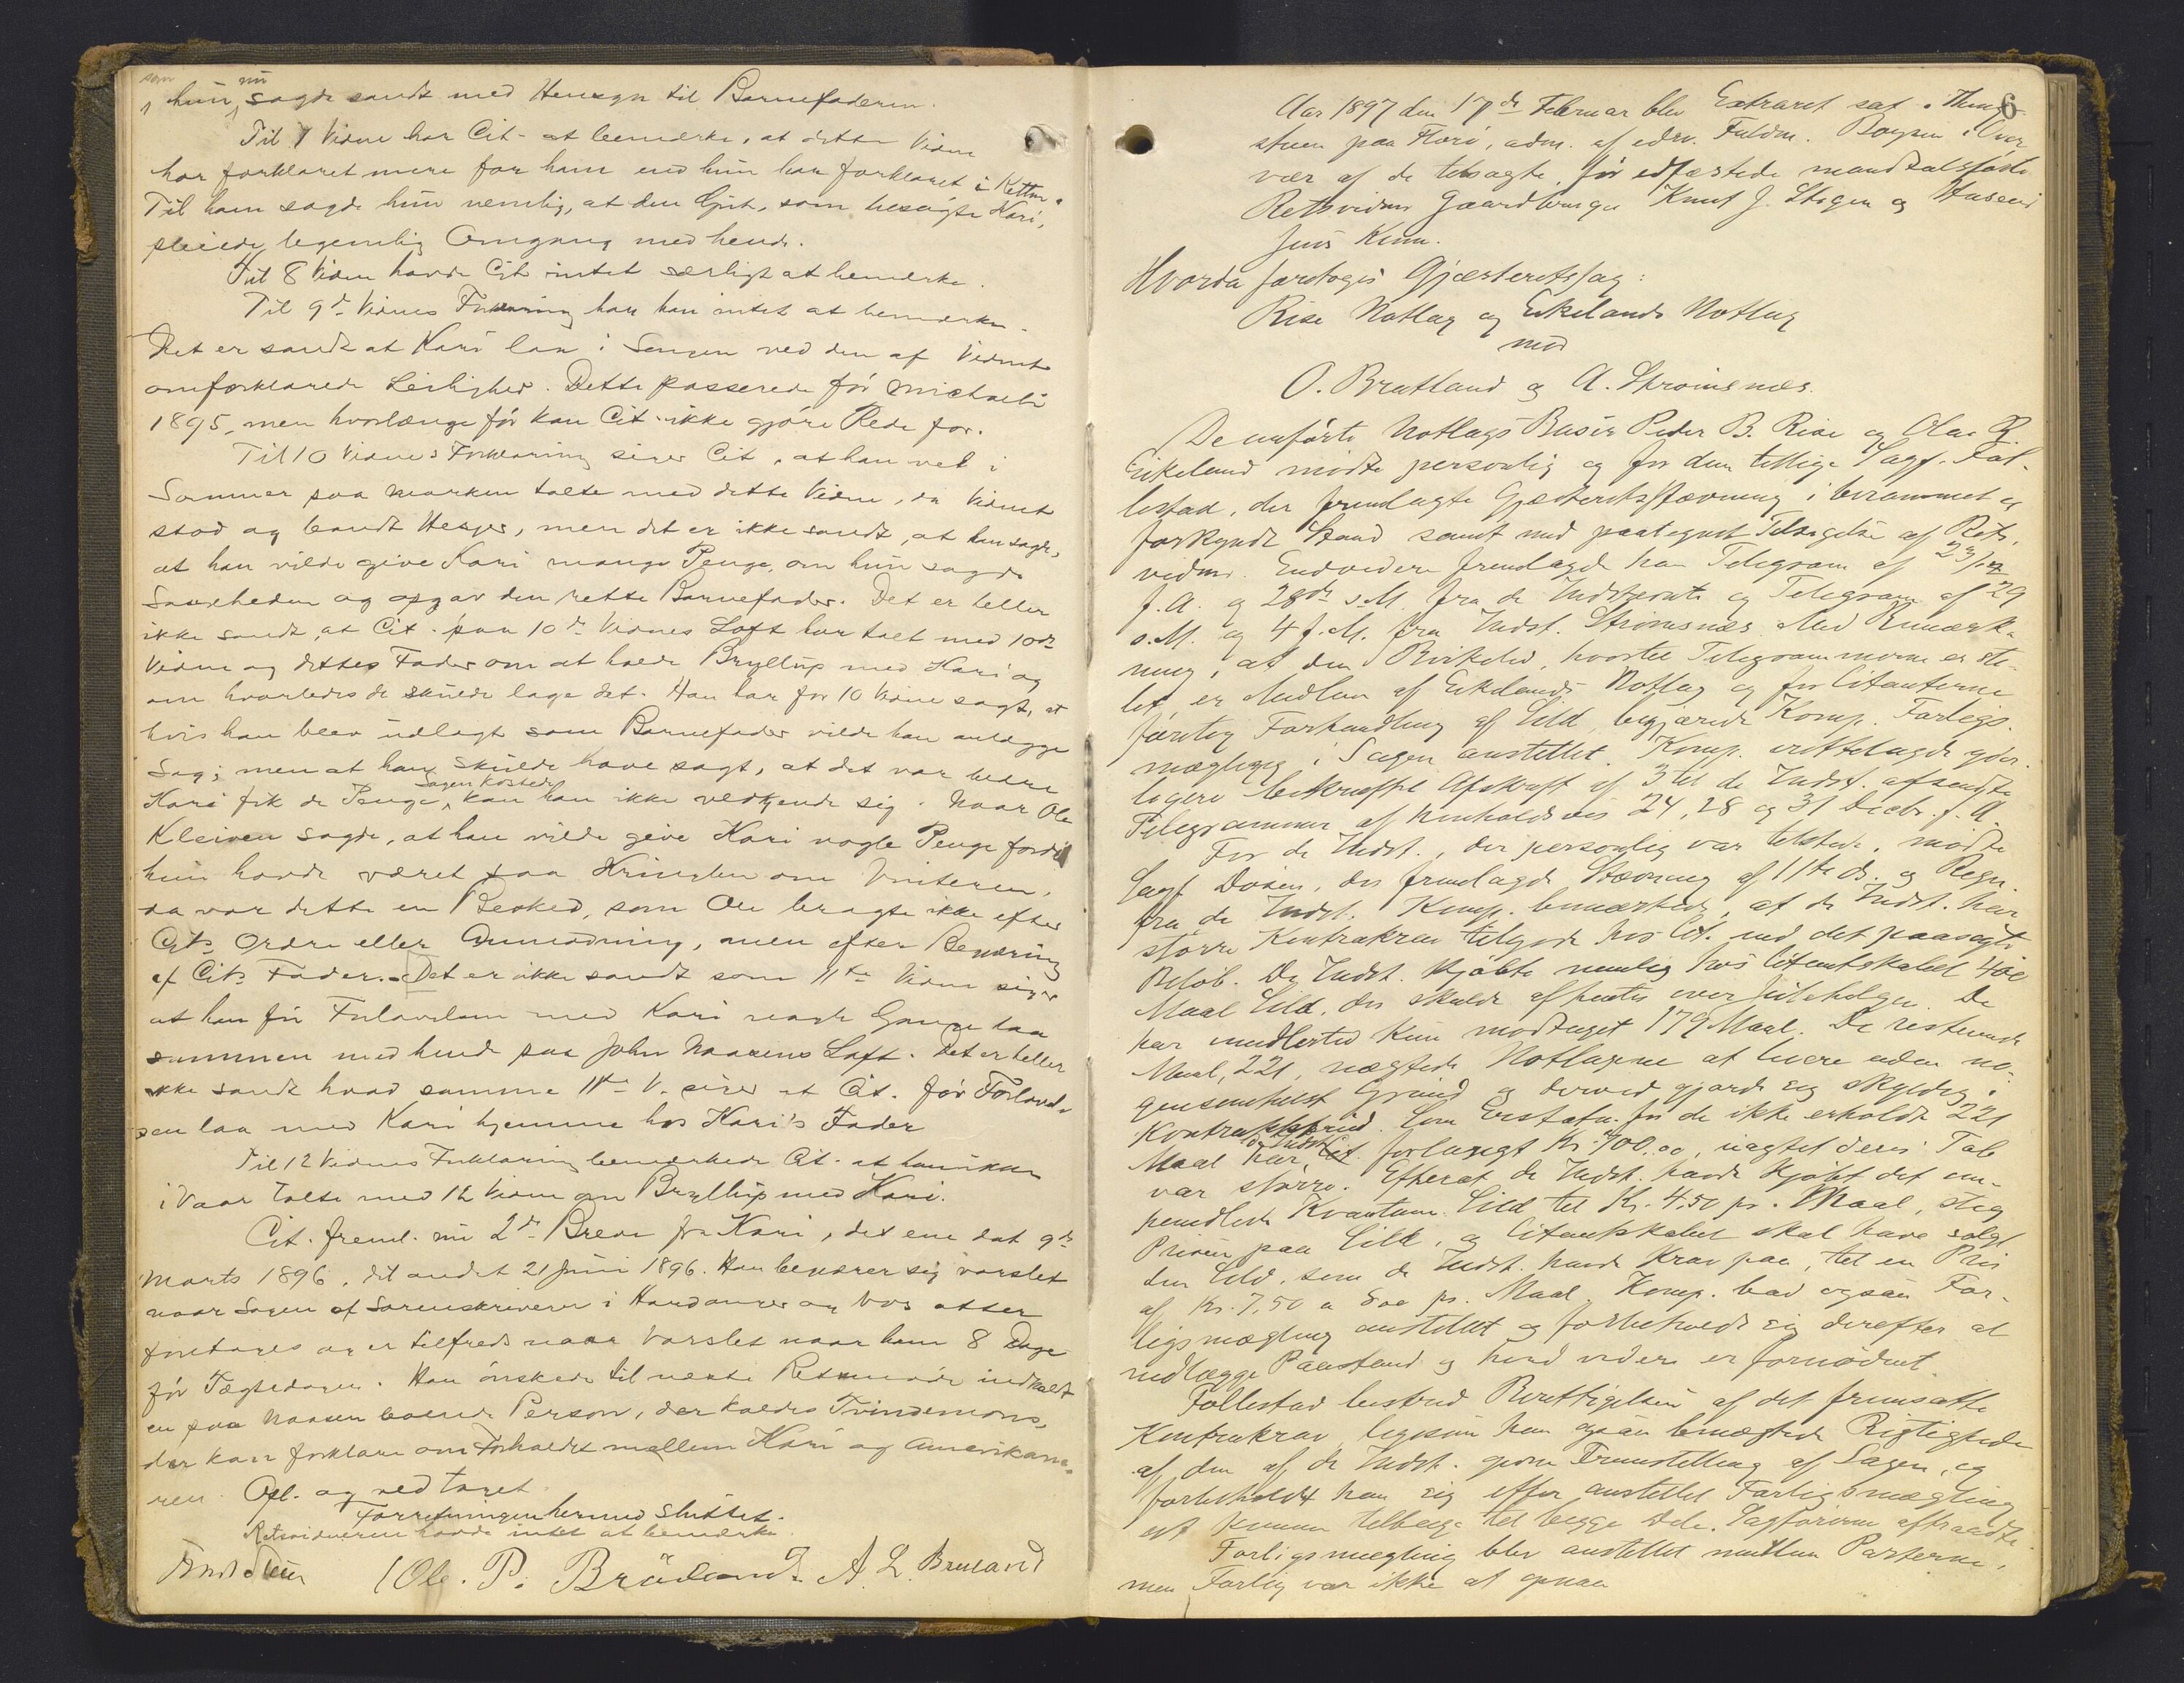 som nu
hun, sagde sandt med Hensyn til Barnefaderen.
Til 7 Vidne har Cit. at bemærke, at dette Vidne
har forklaret mere for ham end hun har forklaret i Retten.
Til ham sagde hun nemlig, at den Gut, som besøgte Kari,
pleiede legemlig Omgang med hende.
Til 8 Vidne havde Cit intet særligt at bemærke.
Til 9de Vidnes Forklaring har han intet at bemærke.
Det er sandt at Kari laa i Sengen ved den af Vidnet
omforklarede Leilighed. Dette passerede før Michaeli
1895, men hvorlænge før kan Cit. ikke gjøre Rede for.
Til 10 Vidnes Forklaring siger Cit, at han vel i
Sommer paa Marken talte med dette Vidne, da Vidnet
stod og bandt Hesjer, men det er ikke sandt, at han sagde,
at han vilde give Kari mange Penge, om hun sagde
Sandheden og opgav den rette Barnefader. Det er heller
ikke sandt, at Cit. paa 10de Vidnes Loft har talt med 10de
Vidne og dettes Fader om at holde Bryllup med Kari og
om hvorledes de skulde lage det. Han har for 10 Vidne sagt, at
hvis han blev udlagt som Barnefader vilde han anlægge
Sag; men at han skulde have sagt, at det var bedre
Sagen kostede
Kari fik de Penge, kan han ikke vedkjende sig. Naar Ole
Kleiven sagde, at han vilde give Kari nogle Penge fordi
hun havde været paa Kringlen om Vinteren,
da var dette en Besked, som Ole bragte ikke efter
Cits Ordre eller Anmodning, men efter Begjæring
af Cits Fader. Det er ikke sandt som 11te Vidne siger
at han før Forlovelsen med Kari nogle Gange laa
sammen med hende paa John Naasens Loft. Det er heller
ikke sandt hvad samme 11te V. siger at Cit. før Forlovel-
sen laa med Kari hjemme hos Kari's Fader
Til 12 Vidnes Forklaring bemærkede Cit. at han ikke
i Vaar talte med 12 Vidne om Bryllup med Kari.
Cit. freml. nu 2de Breve fra Kari, det ene dat 9de
Marts 1896, det andet 21 Juni 1896. Han begjærer sig varslet
naar Sagen af Sorenskriveren i Hardanger og Vos atter
foretages og er tilfreds naar Varslet naar ham 8 Dage
før Tægtedagen. Han ønskede til næste Retsmøde indkaldt
en paa Naasen boende Person, der kaldes Tvindemons,
der kan forklare om Forholdet mellem Kari og Amerikane-
ren. Opl. og vedtaget.
Forretningen hermed sluttet.
Retsvidnerne havde intet at bemærke.
Ole. P. Brüland A. L. Bruland
6
Aar 1897 den 17de Februar blev Extraret sat i Thing-
stuen paa Florø, adm. af edsv. Fuldm. Boysen i Over
vær af de tilsagte, før edfæstede mandtalsførte
Retsvidner Gaardbruger Knut J. Stegen og Huseier
Jens Kinn.
Hvorda foretoges Gjæsteretssag:
Rise Notlag og Eikelands Notlag
mod
O. Bratland og A. Strømsnes.
De anførte Notlags Baser Peder B. Rise og Olai R.
Eikeland mødte personlig og for dem tillige Sagf. Fol-
lestad, der fremlagte Gjæsteretsstævning i berammet og
forkyndt Stand samt med paategnet Tilsigelse af Rets-
vidner. Endvidere fremlagde han Telegram af 23/12
f. A. og 28de s. M. fra de Indstevnte og Telegram af 29
s. M. og 4 f. M. fra Indst. Strømsnes. Med Bemærk-
ning, at den Birkeland, hvortil Telegrammerne er sti-
let, er Medlem af Eikelands Notlag og for Citanterne
førte Forhandling af Sild, begjærede Komp. Forligs-
mægling i Sagen anstillet. Komp. irettelagde yder-
ligere bekræftet Afskrift af 3 til de Indst. afsendte
Telegrammer af henholdsvis 24, 28 og 31 Decbr. f. A.
For de Indst., der personlig var tilstede, mødte
Sagf Døsen, der fremlagde Stævning af 11te ds. og Regn.
fra de Indst. Komp. bemærkede, at de Indst. har
større Kontrakrav tilgode hos Cit. end det paasagte
Beløb. De Indst. kjøbte nemlig hos Citantskabet 400
Maal Sild, der skulde afhentes over Julehelgen. De
har imidlertid kun modtaget 179 Maal. De resterende
Maal, 221, nægtede Notlagene at levere uden no-
gensomhelst Grund og derved gjorde sig skyldig i
Kontraktbrud. Som Erstatn. for de ikke erholdte 221
de Indst.
Maal har forlangt Kr. 700.00, uagtet deres Tab
var større. Efterat de Indst. havde kjøbt det om-
handlede Kvantum Sild til Kr. 4.50 pr. Maal, steg
Prisen paa Sild, og Citantskabet skal have solgt
den Sild, som de Indst. havde Krav paa, til en Pris
af Kr. 7,50 a 8oo pr. Maal. Komp. bad ogsaa For-
ligsmægling anstillet og forbeholdt sig derefter at
nedlægge Paastand og hvad videre er fornødent
Follestad bestred Berettigelsen af det fremsatte
Kontrakrav ligesom han ogsaa benægtede Rigtigheden
af den af de Indst. givne Fremstilling af Sagen, og
forbeholdt han sig efter anstillet Forligsmægling
at komme tilbage til begge Dele. Sagførerne aftraadte.
Forligsmægling blev anstillet mellem Parterne,
men Forlig var ikke at opnaa